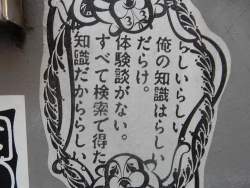 らしいらしい
俺の知識はらしい
だらけ。
体験談がない。
すべて検索で得た
知識だかららしい